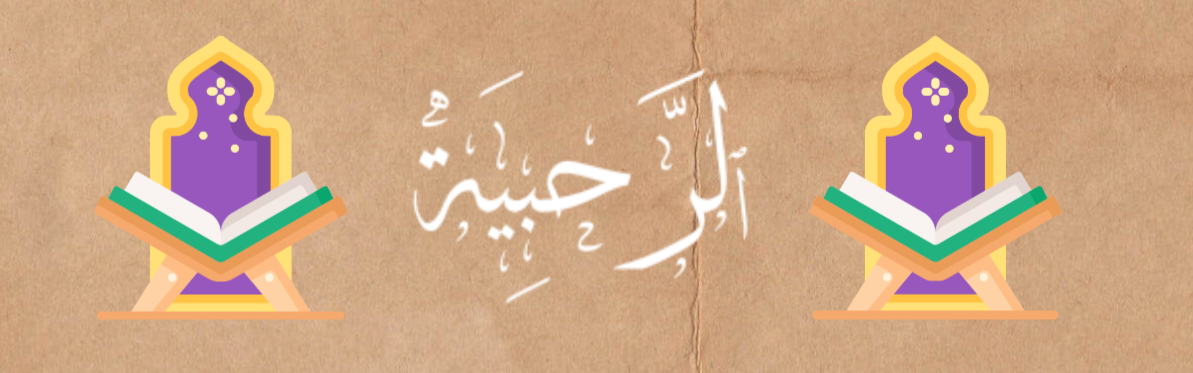 ٱلرَّحبِيَةُ